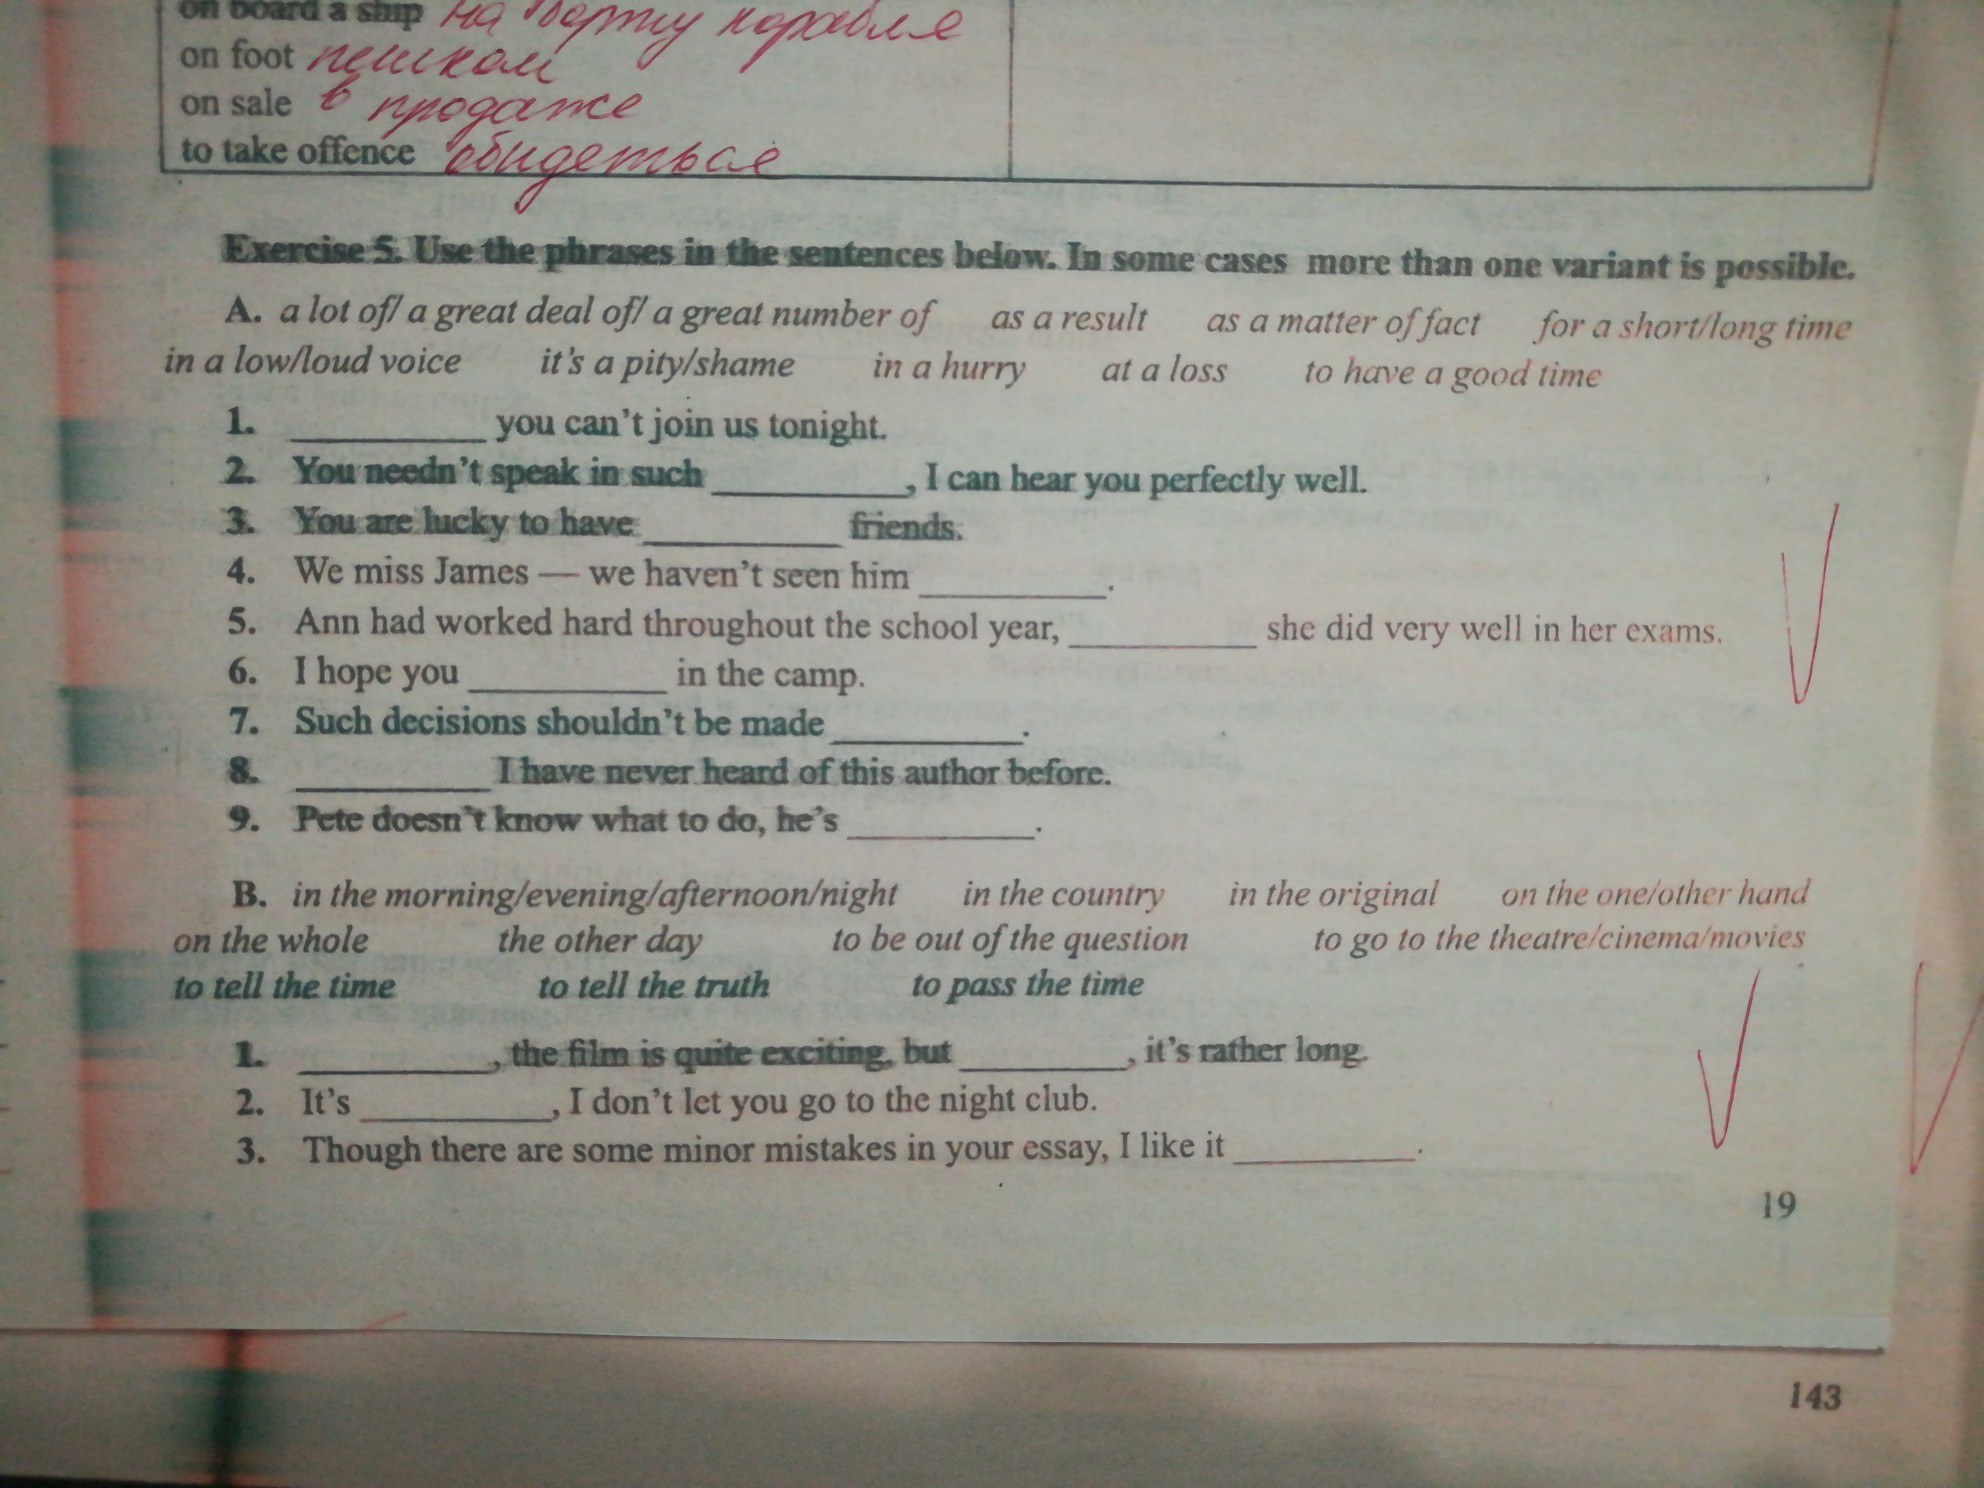 on board a ship на борту корабля
on foot пешком
on sale в продаже
to take offence обидеться
Exercise 5. Use the phrases in the sentences below. In some cases more than one variant is possible.
A. a lot of/ a great deal of/ a great number of as a result as a matter of fact for a short/long time
in a low/loud voice it's a pity/shame in a hurry at a loss to have a good time
1. __________ you can't join us tonight.
2. You needn't speak in such __________, I can hear you perfectly well.
3. You are lucky to have __________ friends.
4. We miss James — we haven't seen him __________.
5. Ann had worked hard throughout the school year, __________ she did very well in her exams.
6. I hope you __________ in the camp.
7. Such decisions shouldn't be made __________.
8. __________ I have never heard of this author before.
9. Pete doesn't know what to do, he's __________.
B. in the morning/evening/afternoon/night in the country in the original on the one/other hand
on the whole the other day to be out of the question to go to the theatre/cinema/movies
to tell the time to tell the truth to pass the time
1. __________, the film is quite exciting, but _________, it's rather long.
2. It's __________, I don't let you go to the night club.
3. Though there are some minor mistakes in your essay, I like it __________.
19
143